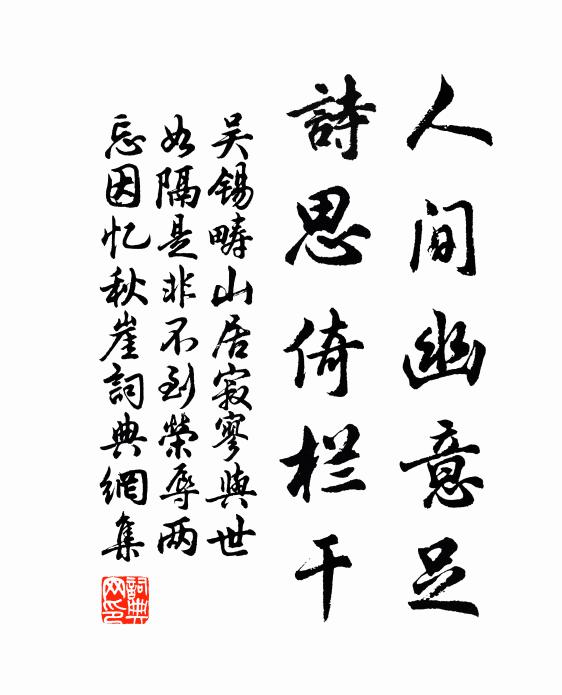 人间幽意足
詩思倚栏干
吴锡畴山居寂寥與世
如隔是非不到榮辱两
忘因忆秋崖詞典網集
詞典
网印